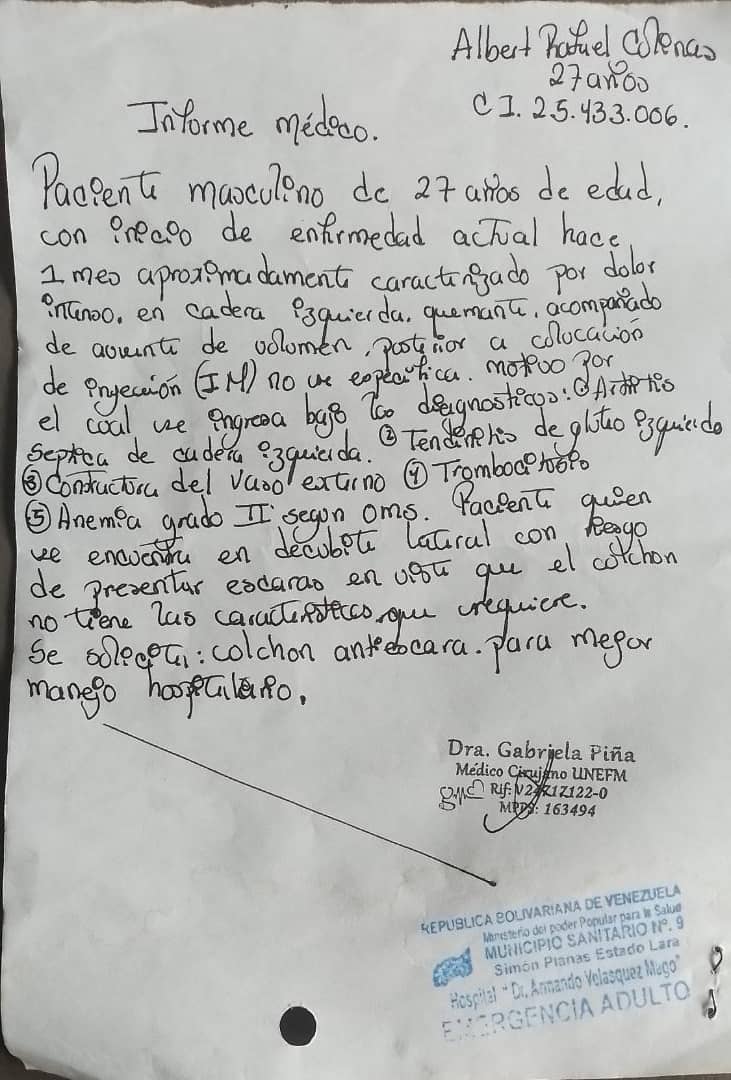 Albert Rafael Colenas
27 años
C I. 25.433.006.
Informe médico.
Paciente masculino de 27 años de edad,
con inicio de enfermedad actual hace
1 mes aproximadamente caracterizado por dolor
intenso, en cadera izquierda, quemante, acompañado
de aumento de volumen, posterior a colocación
de inyección (IM) no se especifica. motivo por
el cual se ingresa bajo los diagnosticos: ① Artritis
Septica de cadera izquierda. ② Tendinitis de gluteo izquierdo
③ Contractura del Vaso externo ④ Trombocitosis
⑤ Anemia grado II segun oms. Paciente quien
se encuentra en decubito lateral con riesgo
de presentar escaras en vista que el colchon
no tiene las caracteristicas que requiere.
Se solicita: colchon antiescara. para mejor
manejo hospitalario.
Dra. Gabriela Piña
Médico Cirujano UNEFM
Rif: V24717122-0
MPPS: 163494
REPUBLICA BOLIVARIANA DE VENEZUELA
Ministerio del poder Popular para la Salud
MUNICIPIO SANITARIO Nº. 9
Simón Planas Estado Lara
Hospital "Dr. Armando Velasquez Mago"
EMERGENCIA ADULTO